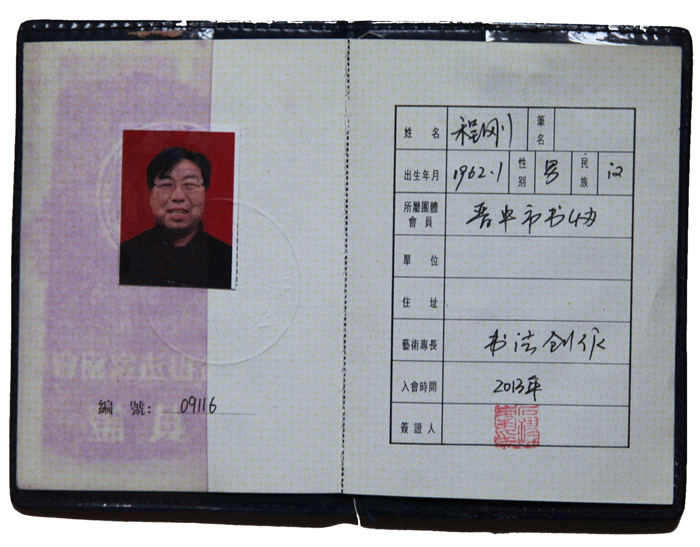 編 號: 09116
姓 名 程刚 筆名
出生年月 1962.1 性别 男 民族 汉
所屬團體會員 晋中市书协
單 位
住 址
藝術專長 书法创作
入會時間 2013年
簽證人